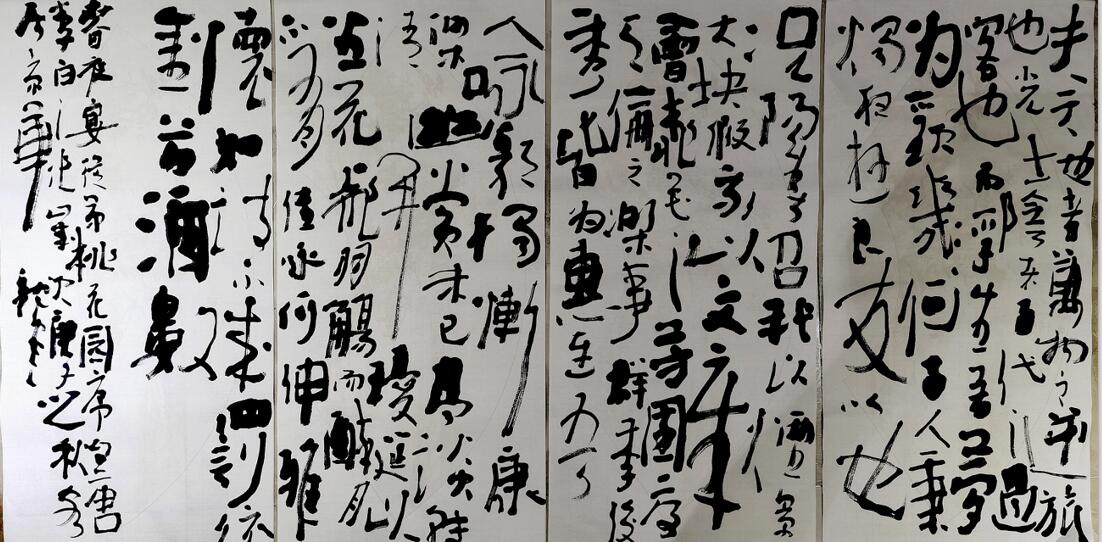 夫天地者萬物之逆旅
也光陰者百代之過
客也而浮生若夢
为歡幾何古人秉
燭夜遊良有以也
况陽春召我以煙景
大塊假我以文章
會桃花之芳園序
天倫之樂事群季俊
秀皆为惠連吾人
咏歌獨慚康
樂幽賞未已高談轉
清開瓊筵以
坐花飛羽觴而醉月
不有佳咏何伸雅
懷如詩不成罰依
金谷酒數
春夜宴從弟桃花園序
李白歲次庚子之秋